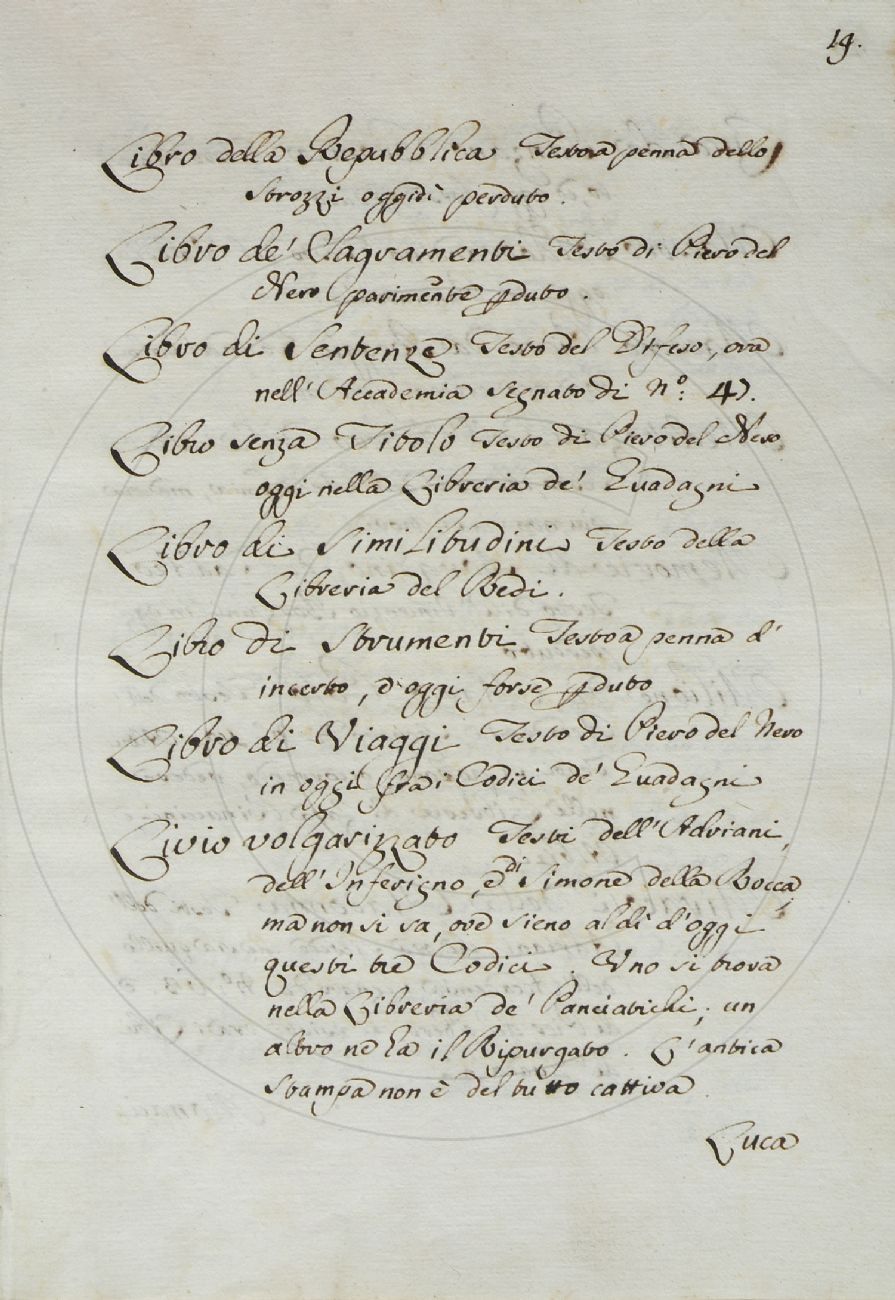 19.
Libro della Repubblica Testo a penna dello
Strozzi oggidì perduto.
Libro de' Sagramenti Testo di Piero del
Nero parimente pduto.
Libro di Sentenze Testo del Difeso, ora
nell'Accademia segnato di N.º: 47.
Libro senza Titolo Testo di Piero del Nero
oggi nella Libreria de' Guadagni
Libro di Similitudini Testo della
Libreria del Redi.
Libro di Strumenti Testo a penna d'
incerto, e oggi forse pduto
Libro di Viaggi Testo di Piero del Nero
in oggi fra i Codici de' Guadagni
Livio volgarizzato Testi dell'Adriani,
dell'Inferigno, e di Simone della Rocca,
ma non si sa, ove sieno al dì d'oggi
questi tre Codici. Uno si trova
nella Libreria de' Panciatichi, un
altro ne ha il Ripurgato. L'antica
stampa non è del tutto cattiva.
Luca